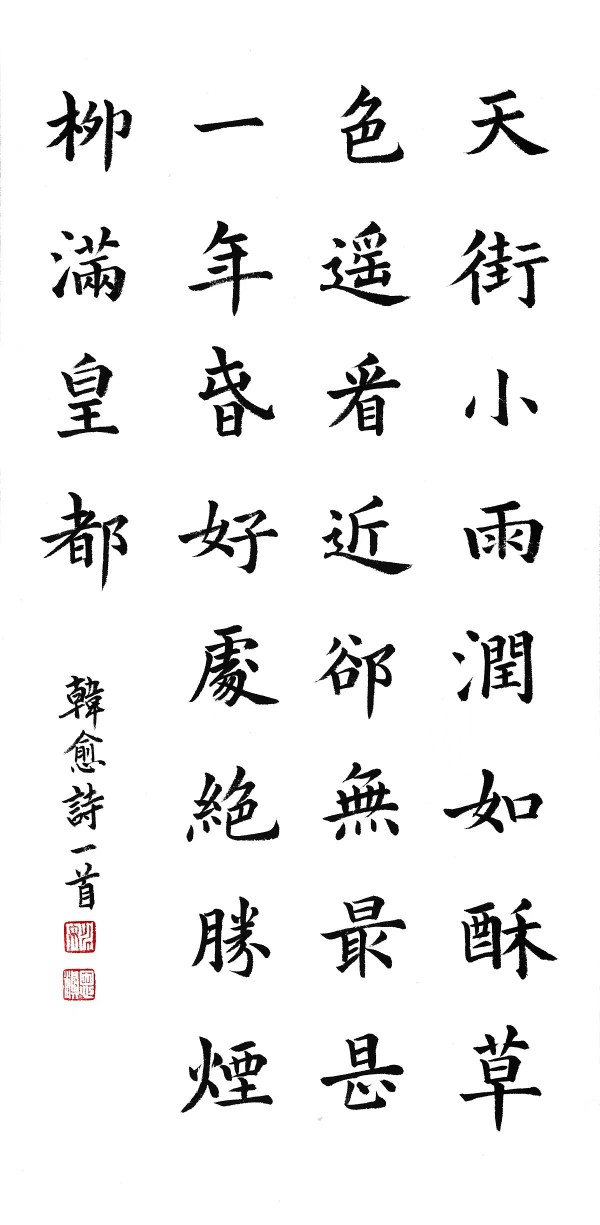 天街小雨潤如酥草
色遥看近卻無最是
一年春好處絕勝煙
柳滿皇都
韓愈詩一首